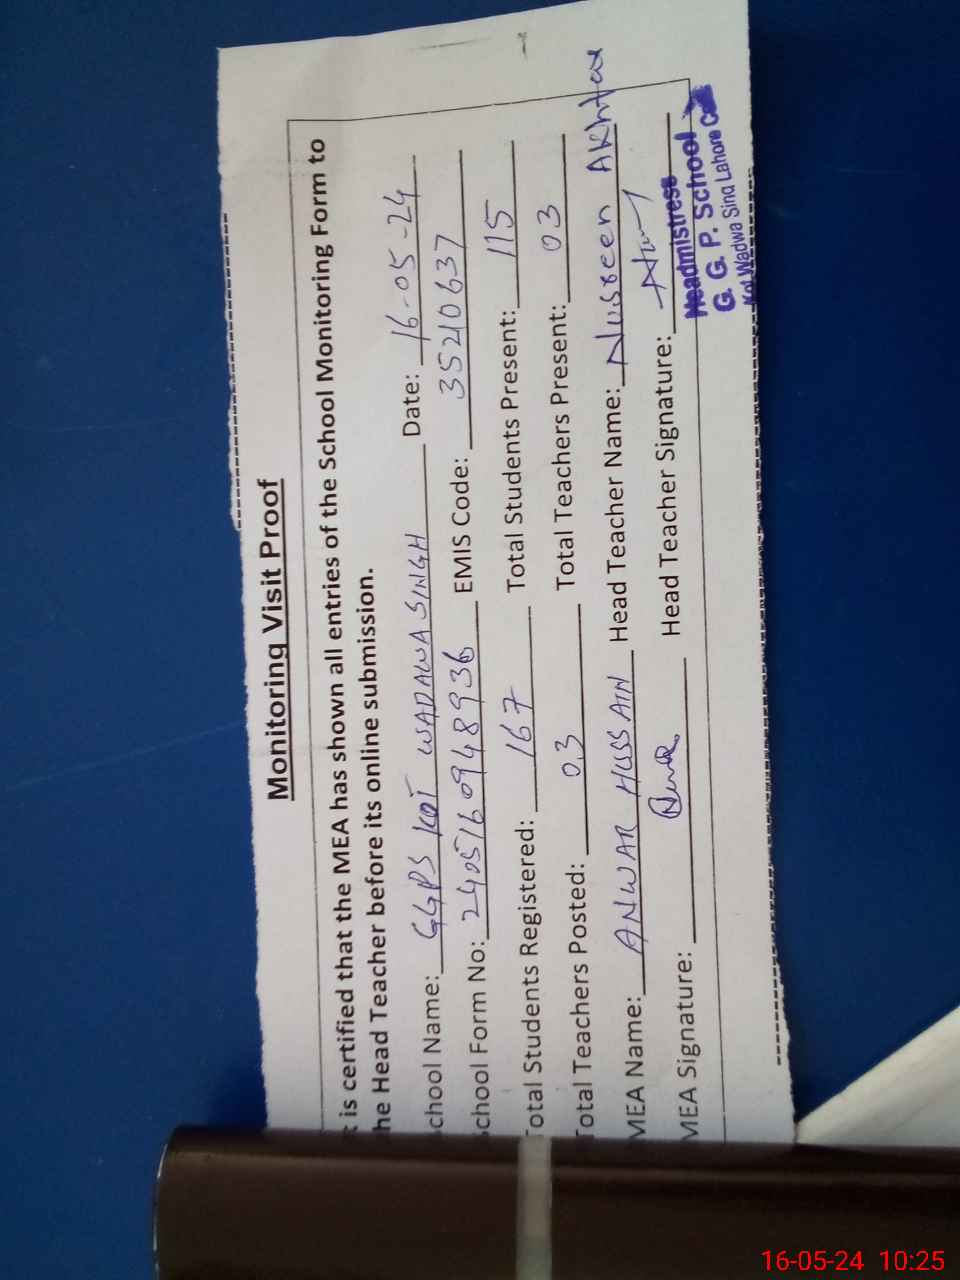 Monitoring Visit Proof
t is certified that the MEA has shown all entries of the School Monitoring Form to
he Head Teacher before its online submission.
chool Name: GGPS KOT WADAWA SINGH Date: 16-05-24
chool Form No: 2405160948936 EMIS Code: 35210637
Total Students Registered: 167 Total Students Present: 115
Total Teachers Posted: 03 Total Teachers Present: 03
MEA Name: ANWAR HUSSAIN Head Teacher Name: Nusreen Akhtar
MEA Signature: Head Teacher Signature:
Headmistress
G. G. P. School
Kot Wadwa Sing Lahore
16-05-24 10:25